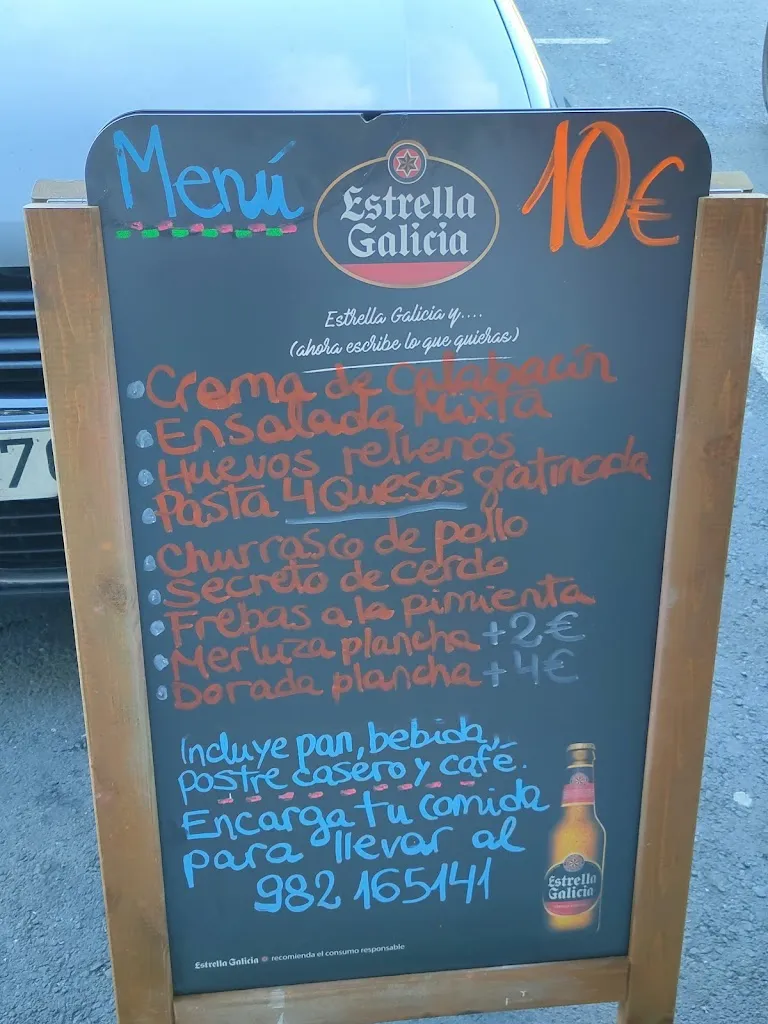 Menú
Estrella
Galicia
10€
Estrella Galicia y....
(ahora escribe lo que quieras)
Crema de calabacín
Ensalada Mixta
Huevos rellenos
Pasta 4 Quesos gratinada
Churrasco de pollo
Secreto de cerdo
Frebas a la pimienta
Merluza plancha +2€
Dorada plancha +4€
Incluye pan, bebida,
postre casero y café.
Encarga tu comida
para llevar al
982 165141
Estrella
Galicia
Estrella Galicia recomienda el consumo responsable
70